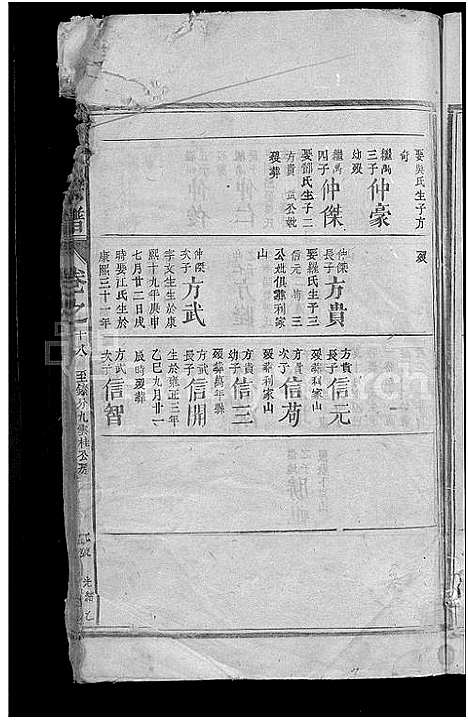 娶吳氏生子方
奇
繼禹
三子仲豪
幼歿
繼禹
四子仲傑
娶鄒氏生子二
方貴 武公妣
歿葬
歿
仲傑
長子方貴
娶羅氏生子三
信元 苟 三
公妣俱葬利家
山
仲傑
次子方武
字文生生於康
熙十九年庚申
七月廿二日戌
時娶江氏生於
康熙三十一年
方貴
長子信元
歿葬利家山
方貴
次子信苟
歿葬利家山
方貴
幼子信三
歿葬萬年縣
方武
長子信開
生於雍正三年
乙巳九月廿一
辰時歿葬
方武
次子信智
譜
卷之十八
桂公房
光緒